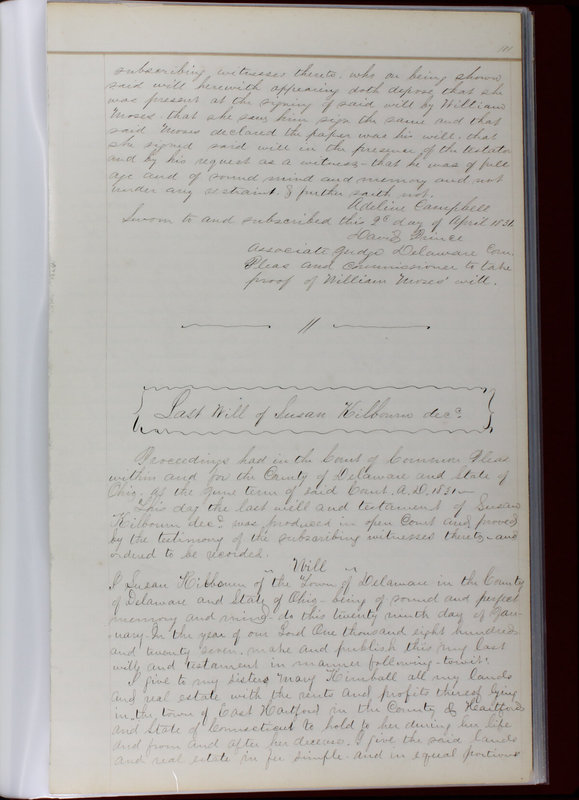 181
subscribing witnesses thereto. who on being shown
said will herewith appearing doth depose that she
was present at the signing of said will by William
Moses. that she saw him sign the same and that
said Moses declared the paper was his will. that
she signed said will in the presence of the testator
and by his request as a witness - that he was of full
age and of sound mind and memory and not
under any restraint. & further saith not.
Adeline Campbell
Sworn to and subscribed this 2d day of April 1831.
David Prince
Associate Judge Delaware Com.
Pleas and commissioner to take
proof of William Moses' will.
Last Will of Susan Kilbourn decd.
Proceedings had in the Court of Common Pleas
within and for the County of Delaware and State of
Ohio. at the June term of said Court. A.D. 1831.
This day the last will and testament of Susan
Kilbourn decd. was produced in open Court and proved
by the testimony of the subscribing witnesses thereto - and
ordered to be recorded.
" Will "
I Susan Kilbourn of the Town of Delaware in the County
of Delaware and State of Ohio - being of sound and perfect
memory and mind - do this twenty ninth day of Jan-
-uary. In the year of our Lord One thousand eight hundred
and twenty seven. make and publish this my last
will and testament in manner following - towit:
I give to my sister Mary Kimball all my lands
and real estate with the rents and profits thereof lying
in the town of East Hartford in the County of Hartford
and State of Connecticut to hold to her during her life
and from and after her decease. I give the said lands
and real estate in fee simple - and in equal portions